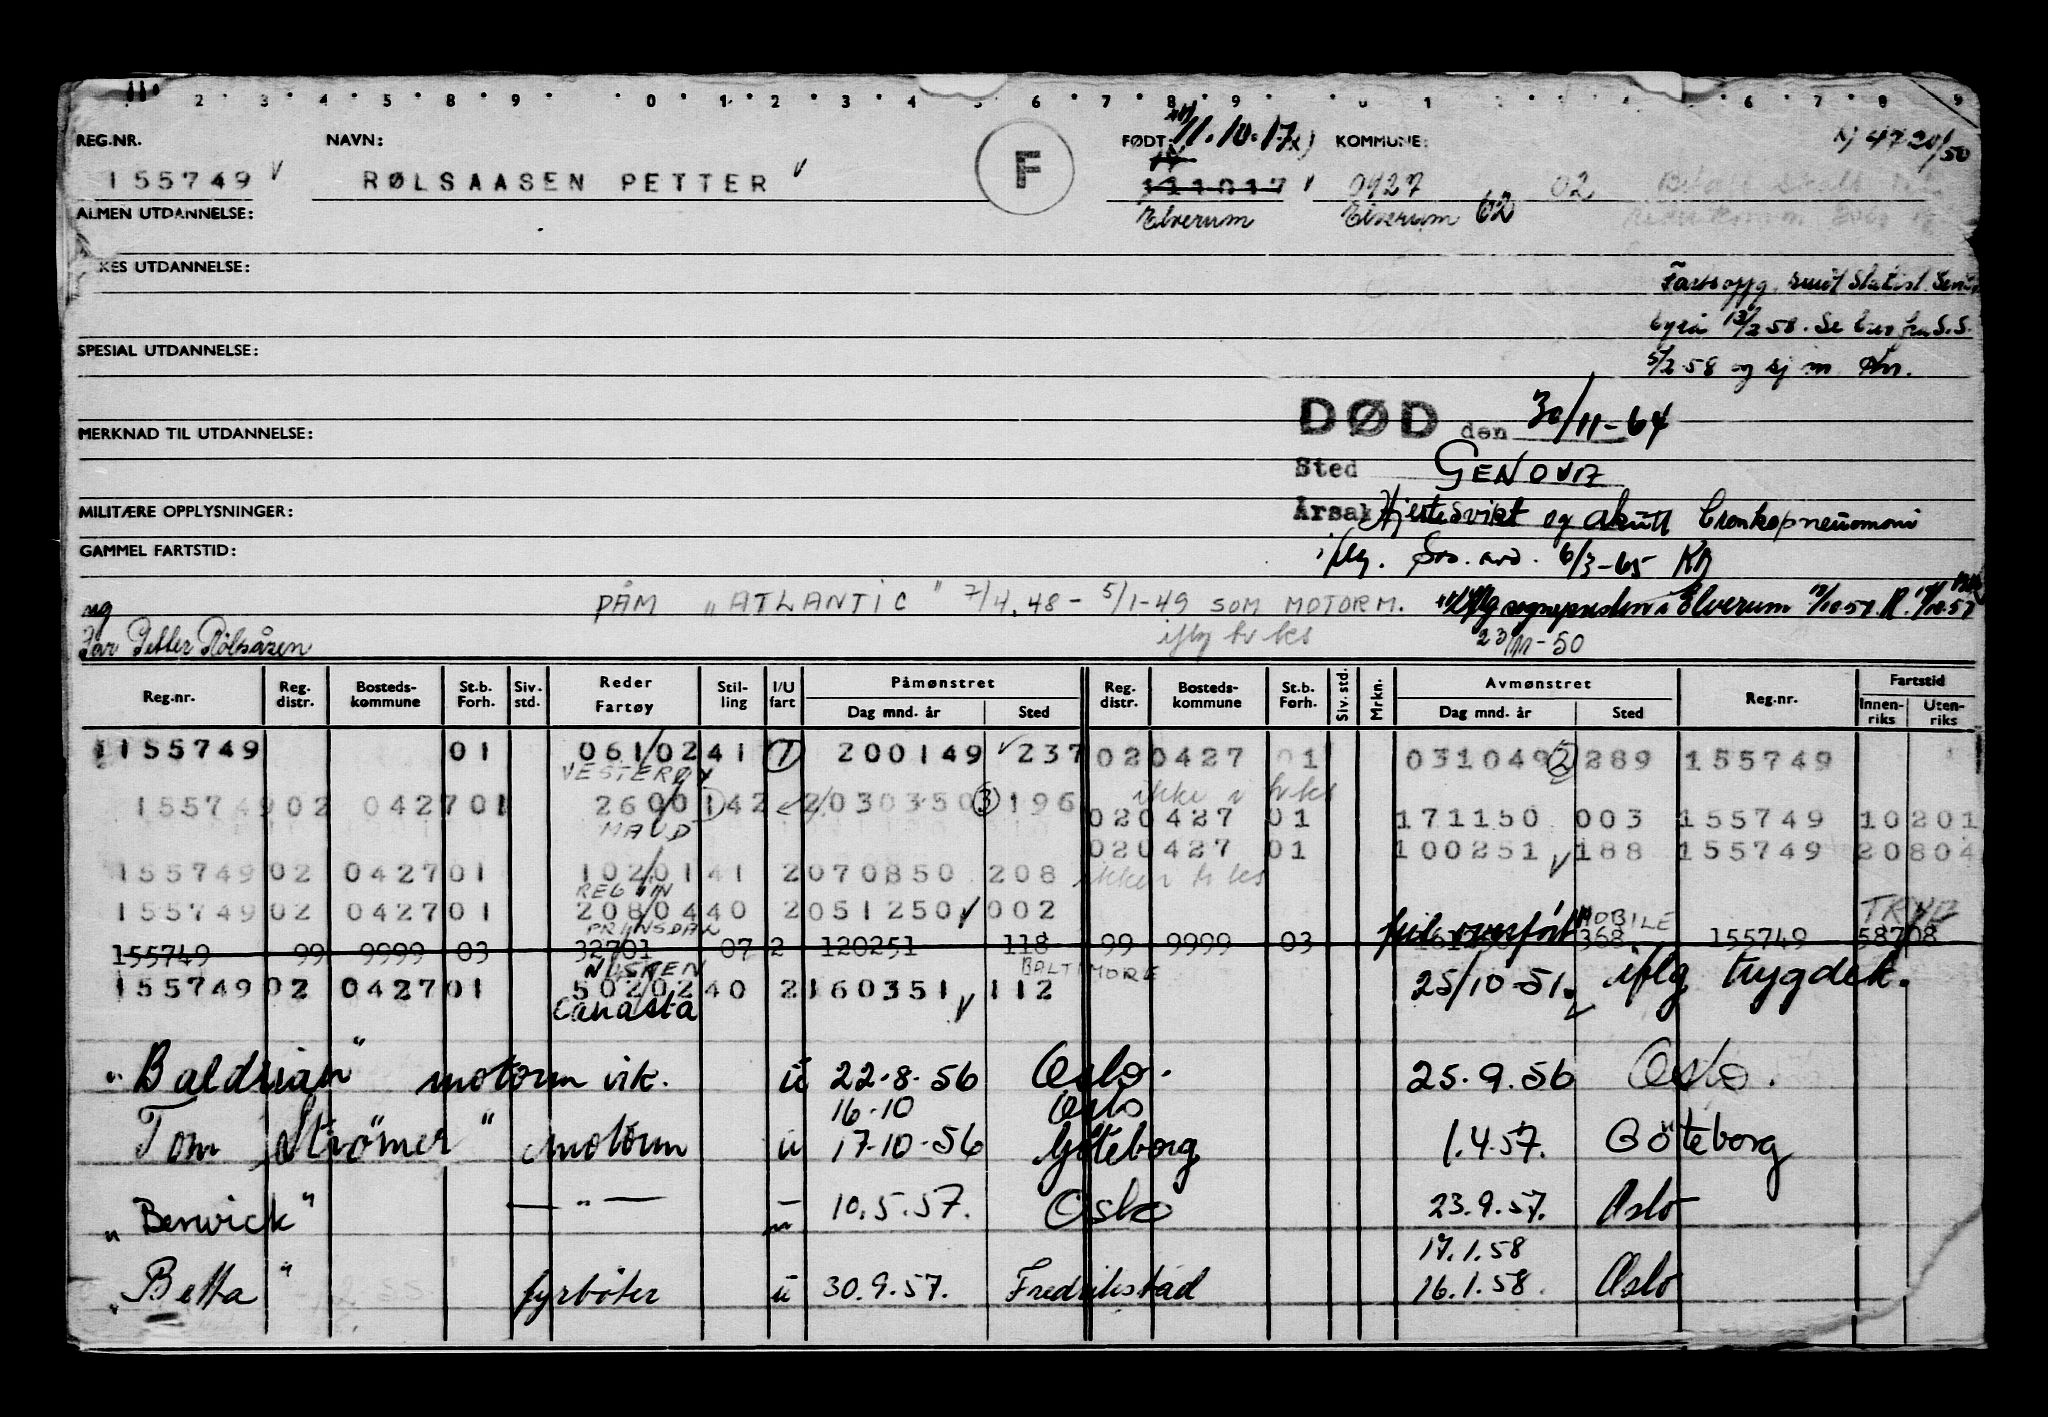 REG.NR. NAVN: FØDT: 11.10.17 KOMMUNE: 47 20/50
155749 RØLSAASEN PETTER F 111017 0427 02
ALMEN UTDANNELSE: Elverum Elverum 02
KES UTDANNELSE:
byrå 13/2 58. Se
SPESIAL UTDANNELSE: 5/2-58 og sj m
DØD den 30/11-64
MERKNAD TIL UTDANNELSE:
Sted GENOVA
MILITÆRE OPPLYSNINGER: Årsak Hjertesvikt og akutt bronkopneumoni
GAMMEL FARTSTID: iflg. 6/3-65
PÅM "ATLANTIC" 7/4.48 - 5/1-49 SOM MOTORM. sognepresten i Elverum
iflg br ks 23/11-50
Petter Rölsåsen
Reg.nr. Reg. distr. Bosteds-kommune St.b. Forh. Siv. std. Reder Fartøy Stil-ling I/U fart Påmønstret Dag mnd. år Sted Reg. distr. Bosteds-kommune St.b. Forh. Siv. std. Mrkn. Avmønstret Dag mnd. år Sted Reg.nr. Fartstid Innen-riks Uten-riks
155749 01 061/02 41 1 200149 237 02 0427 01 031049 2 289 155749
VESTERØY ikke i br ks
155749 02 0427 01 26/00 1 42 2 030350 3 196
MAUD 02 0427 01 171150 003 155749 10201
02 0427 01 100251 188 155749 20804
155749 02 0427 01 102/01 41 2 070850 208 ikke i br ks
REGIN
155749 02 0427 01 208/04 40 2 051250 002 MOBILE
PRINSDAL feil overført
155749 99 9999 03 32701 07 2 120251 118 99 9999 03 368 155749 58708
NISKEN BALTIMORE
155749 02 0427 01 50202 40 2 160351 112 25/10-51. iflg trygdek.
Canasta
"Baldrian" motorm vik. u 22-8-56 Oslo. 25.9.56 Oslo.
16-10 Oslo
Tom Strömer" motorm u 17-10-56 Göteborg 1.4.57. Göteborg
"Berwick" — " — u 10.5.57. Oslo 23.9.57. Oslo
17.1.58
"Betta" fyrböter u 30.9.57. Fredrikstad 16.1.58. Oslo